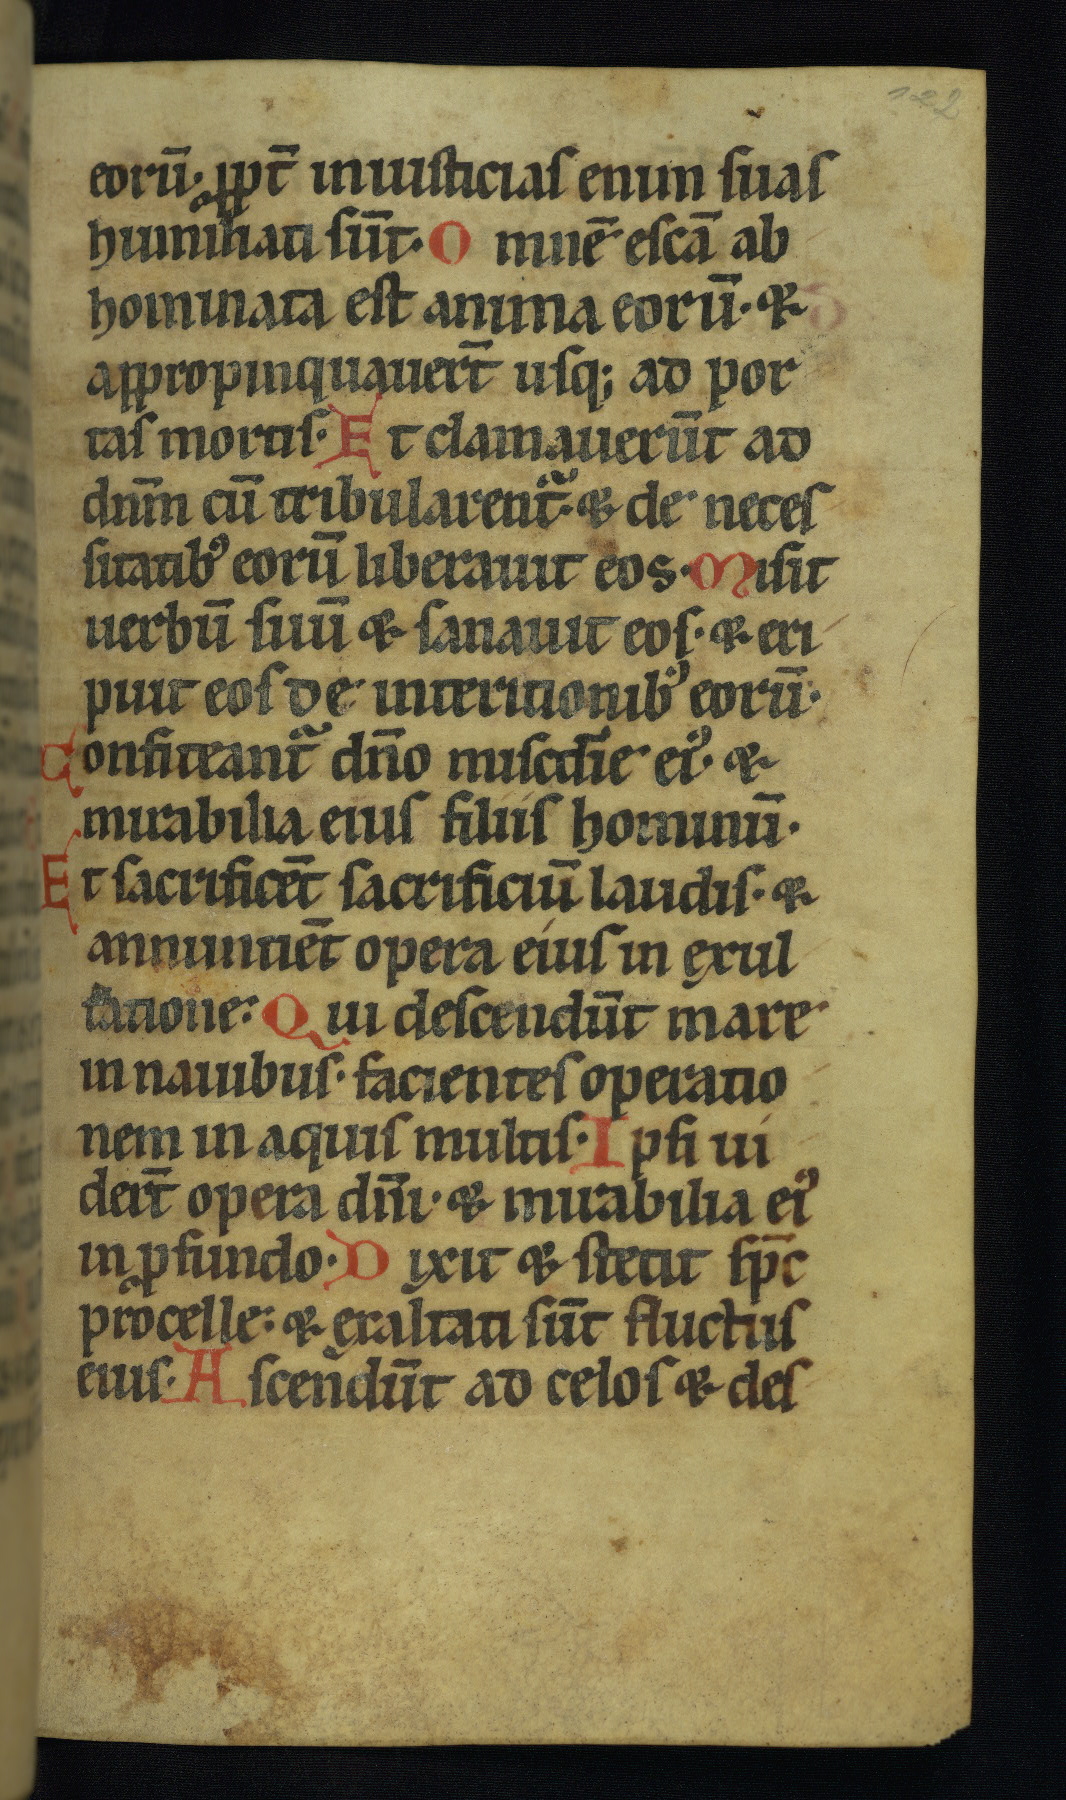 122
eorū· ꝓpt̄ iniusticias enim suas
humiliati sūt· O mnē escā ab
hominata est anima eorū· &
appropinquauert̄ usq; ad por
tas mortis· E t clamauerūt ad
dnm̄ cū tribularent᷑· & de neces
sitatibꝰ eorū liberauit eos· Misit
uerbū suū & sanauit eos· & eri
puit eos de interitionibꝰ eorū·
Confiteant᷑ dño miscd̄ie eiꝰ· &
mirabilia eius filiis hominū·
Et sacrificēt sacrificiū laudis· &
annuntiēt opera eius in exul
tatione· Q ui descendūt mare
in nauibus· facientes operatio
nem in aquis multis· I psi ui
dert̄ opera dn̄i· & mirabilia eiꝰ
in ꝓfundo· D ixit & stetit sp̄c
procelle· & exaltati sūt fluctus
eius· A scendūt ad celos & des